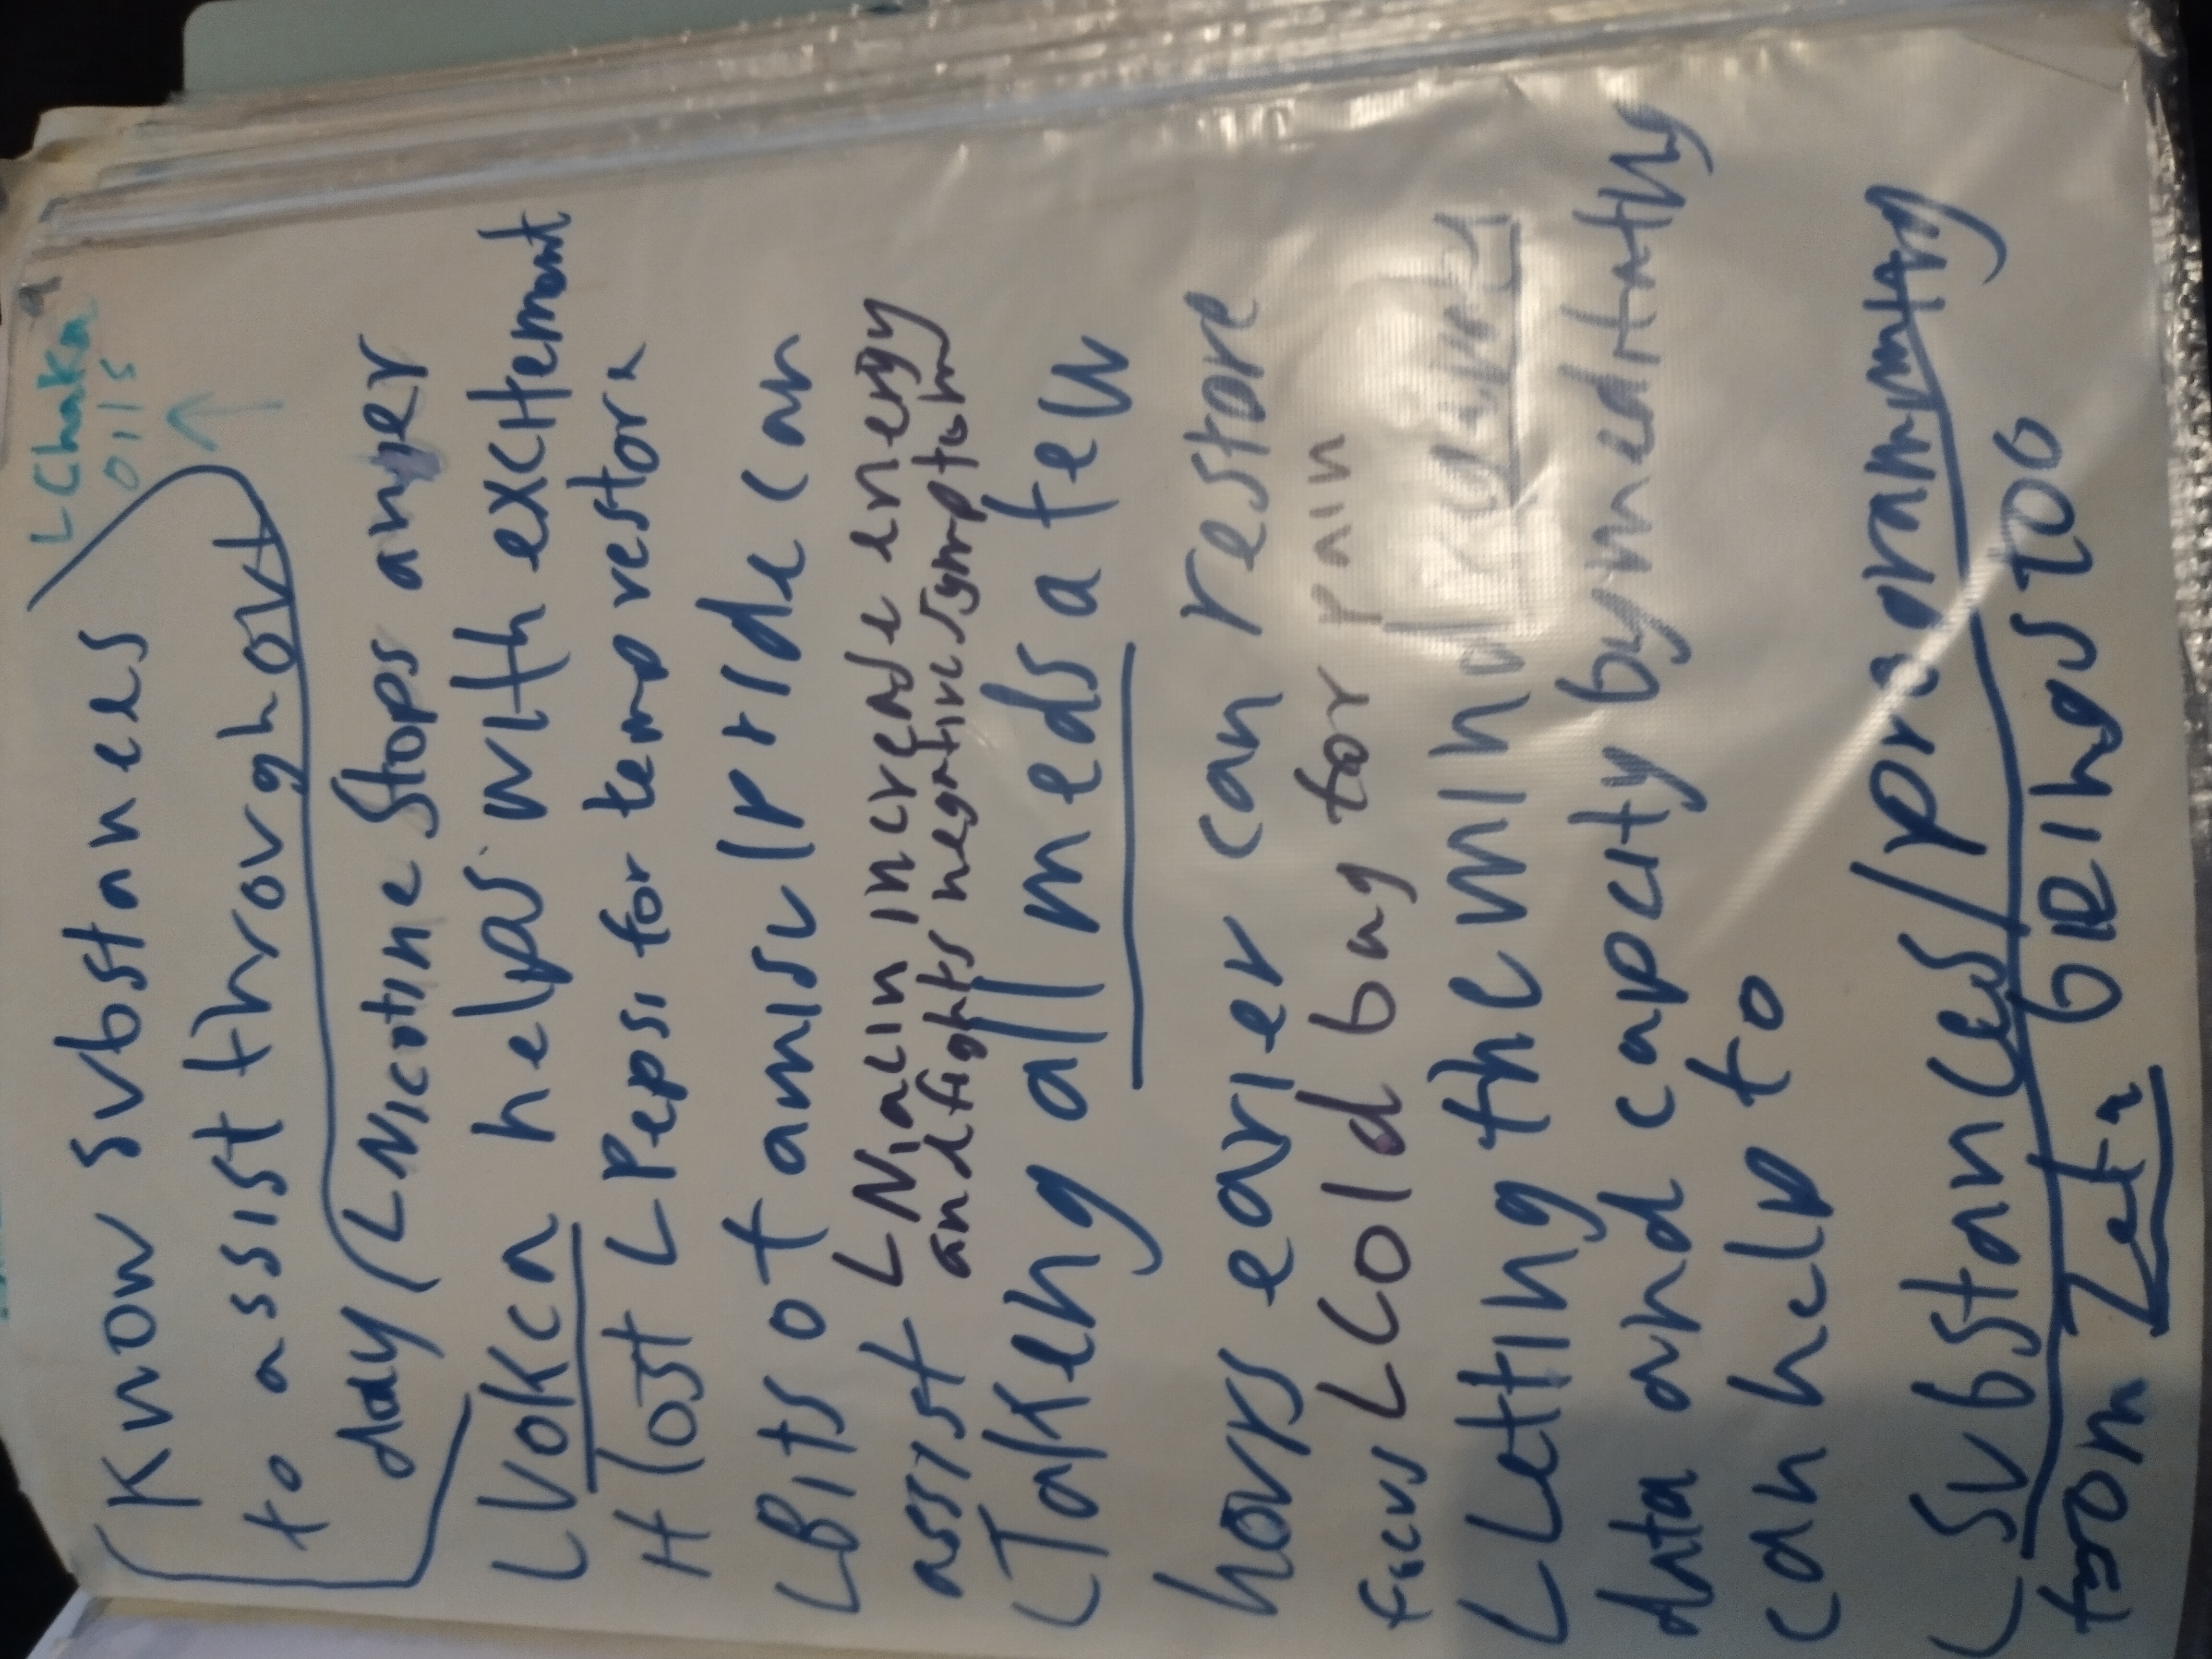 L Chakra
oils
Know substances
to assist throughout
day / L Nicotine stops anger
L Vokca helps with excitement
if lost L Pepsi for temp restore
L Bits of amisulpride can
assist L Niacin increase energy
and fights negative symptoms
L Takeng all meds a few
hours earier can restore
focus L Cold bag for
L Letting the mind
data and capcity by meditating
can help to
L Substances
from Left